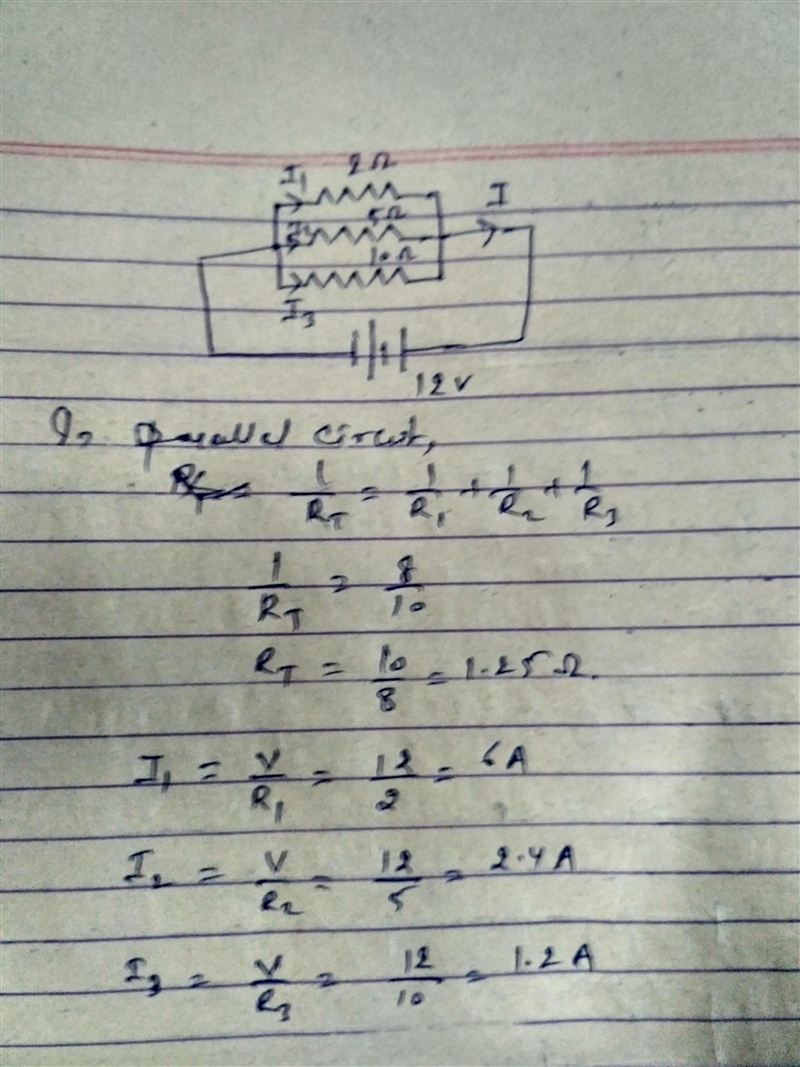 2Ω
I₁ I
5Ω
I₂
10Ω
I₃
12V
In parallel circuit,
1/R_T = 1/R₁ + 1/R₂ + 1/R₃
1/R_T = 8/10
R_T = 10/8 = 1.25Ω.
I₁ = V/R₁ = 12/2 = 6A
I₂ = V/R₂ = 12/5 = 2.4A
I₃ = V/R₃ = 12/10 = 1.2A